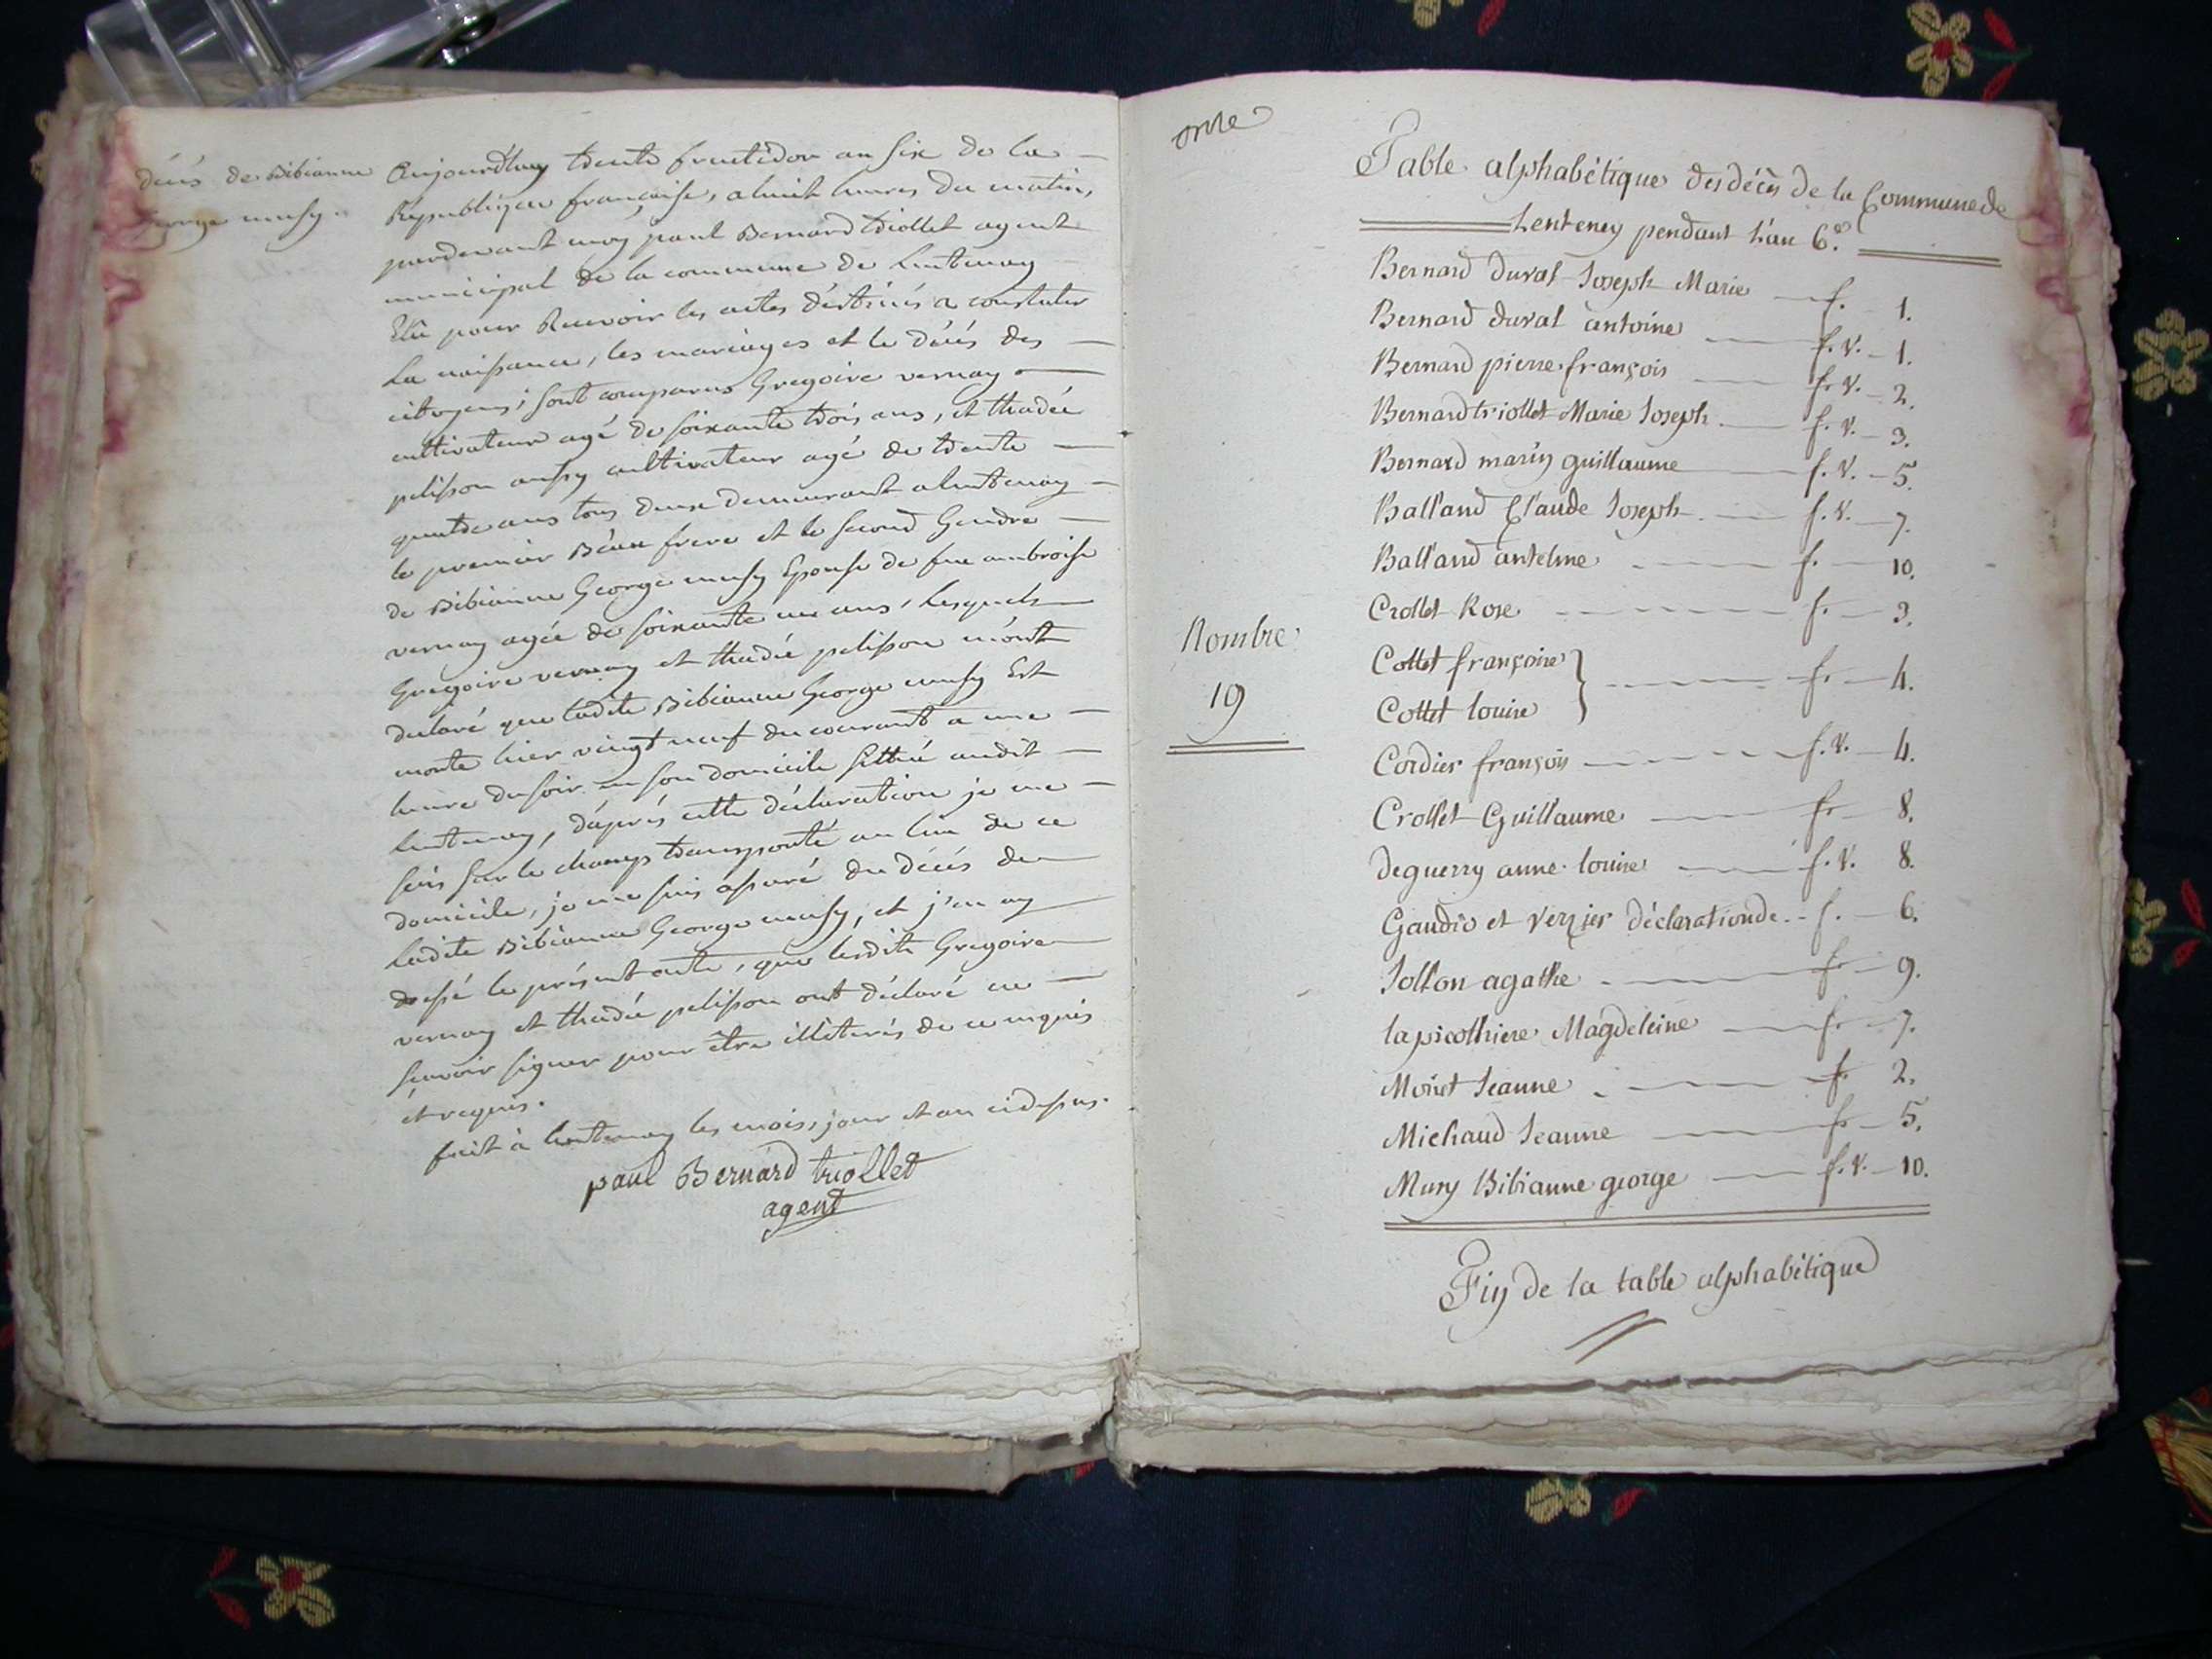 décès de Bibianne
George musy.
Aujourd'huy trente fructidor an six de la
République française, a huit heures du matin,
pardevant moy paul Bernard triollet agent
municipal de la commune de Lentenay
Elû pour Recevoir les actes déstinés a constater
La naissance, les mariages et le décés des
citoyens; sont comparus Gregoire vernay
cultivateur agé de soixante trois ans, et thadée
pelisson aussy cultivateur agé de trente
quatre ans tous deux demeurant a lentenay
le premier Béau frere et le second Gendre
de Bibianne George musy Epouse de feu ambroise
vernay agée de soixante un ans, Lesquels
Gregoire vernay et thadée pelisson m'ont
declaré que ladite Bibianne George musy Est
morte hier vingt neuf du courant a une
heure du soir en son domicile sittué audit
lentenay, d'aprés cette déclaration je me
suis sur le champs transporté au lieu de ce
domicile, je me suis assuré du décés de
Ladite Bibianne George musy, et j'en ay
dressé le présent acte, que lesdits Gregoire
vernay et thadée pelisson ont déclaré ne
scavoir signer pour être illiterés de ce enquis
et requis.
fait à lentenay les mois, jour et an cidessus.
paul Bernard triollet
agent
onze
Table alphabétique des décès de la Commune de
Lenteney pendant l'an 6.e
Bernard duval Joseph Marie f. 1.
Bernard duval antoine f. v. 1.
Bernard pierre françois f. v. 2.
Bernard triollet Marie Joseph f. v. 3.
Bernard mariy guillaume f. v. 5.
Balland Claude Joseph f. v. 7.
Balland antelme f. 10.
Crollet Rose f. 3.
Collet françoise
f. 4.
Nombre
Collet louise
19
Cordier françois f. v. 4.
Crollet Guillaume f. 8.
Deguerry anne louise f. v. 8.
Gaudio et Verzier déclaration de f. 6.
Jollon agathe f. 9.
lapicothiere Magdeleine f. 7.
Moiret Jeanne f. 2.
Michaud Jeanne f. 5.
Musy Bibianne george f. v. 10.
Fiy de la table alphabétique